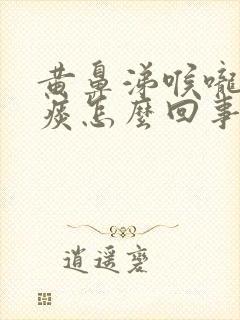 黄鼻涕喉嚨
痰怎麼回事
逍遥䕫